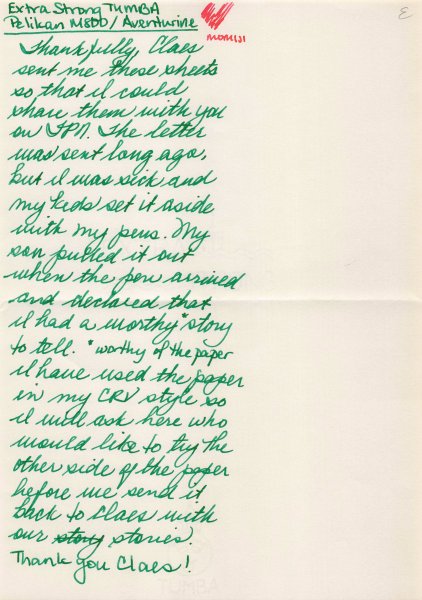 Extra Strong TUMBA
Pelikan M800/Aventurine
MOMIJI
E
Thankfully, Claes
sent me these sheets
so that I could
share them with you
on FPN. The letter
was sent long ago,
but I was sick and
my kids set it aside
with my pens. My
son pulled it out
when the pen arrived
and declared that
I had a worthy* story
to tell. *worthy of the paper
I have used the paper
in my CRV style so
I will ask here who
would like to try the
other side of the paper
before we send it
back to Claes with
our story stories.
Thank you Claes!
TUMBA